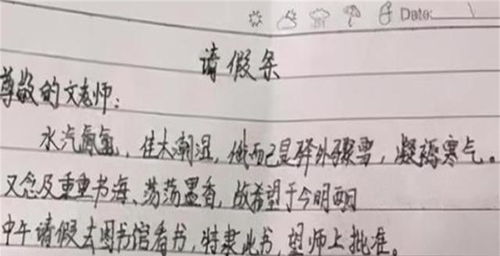 Date:
请假条
尊敬的文老师:
水汽氤氲,佳木潮湿,俄而已显驿外骤雪,凝稀寒气。
又念及重重书海、荡荡墨香,故希望于今明两日
中午请假去图书馆看书,特禀此书,望师上批准。